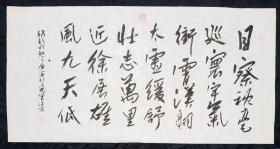 目察秋毫
巡寰宇氣
衝霄漢翱
太虛緩舒
壯志萬里
近徐展雄
風九天低